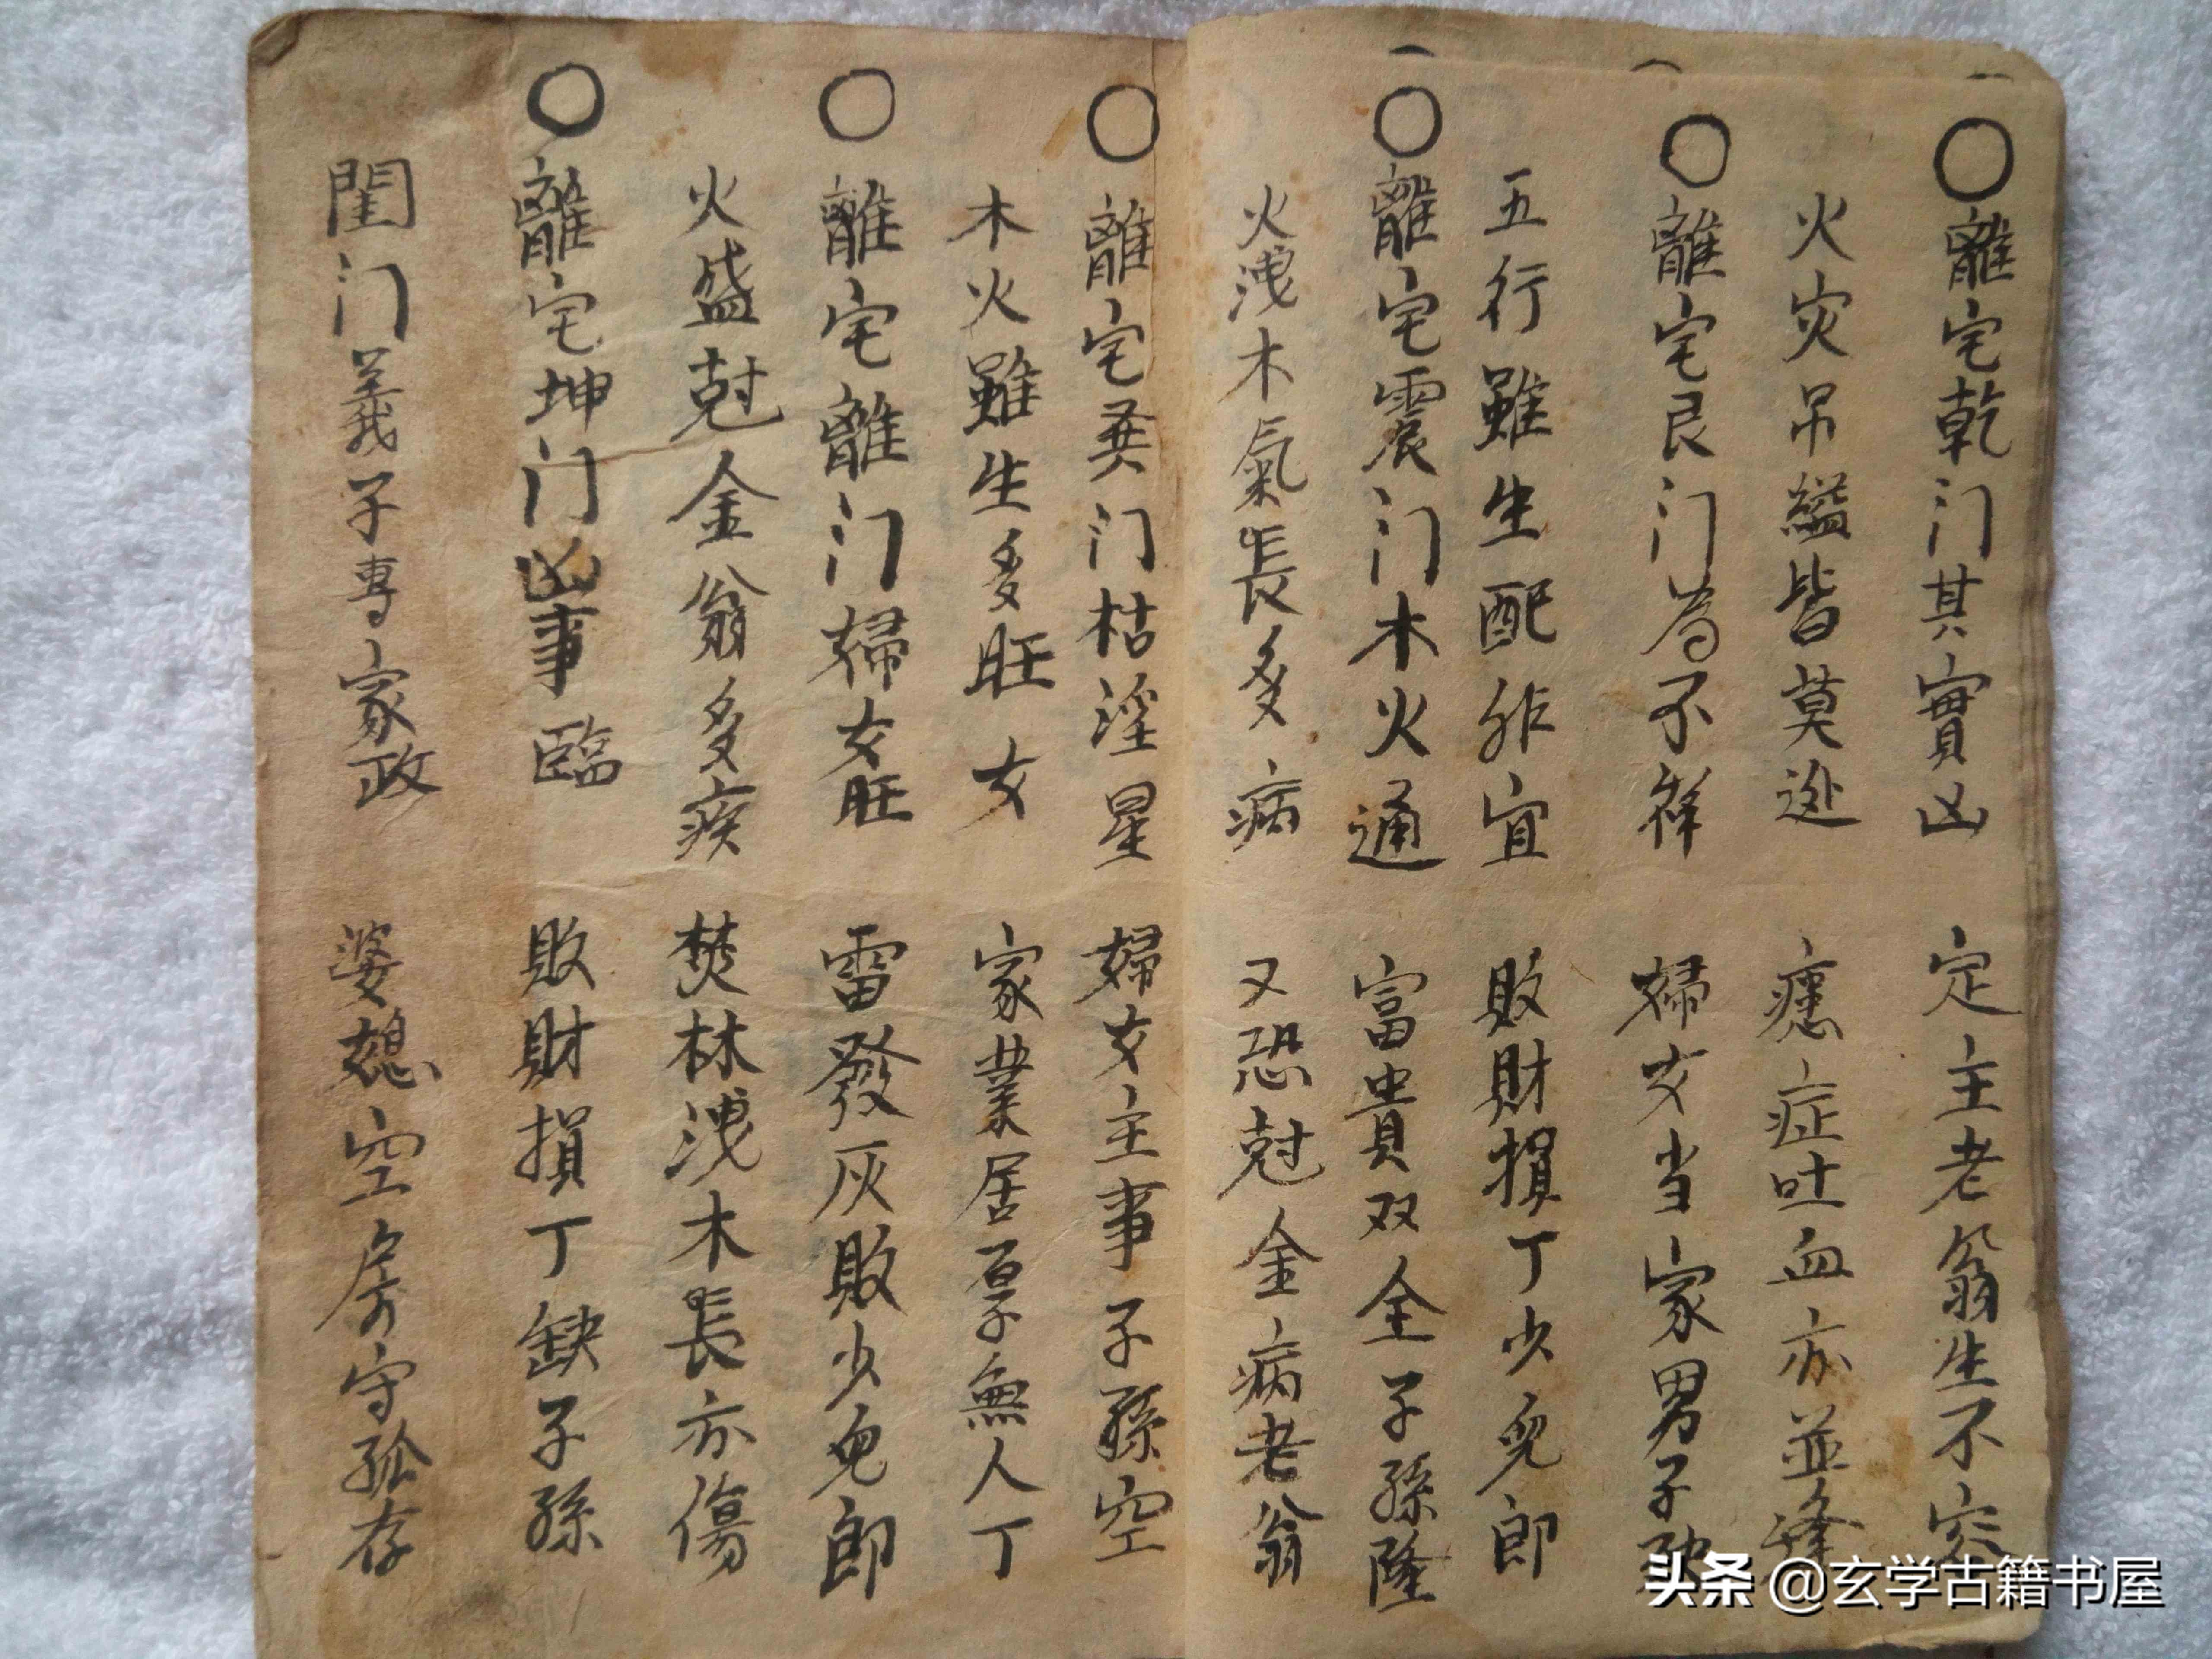 〇離宅乾门其實凶　定主老翁生不容
火灾吊縊皆莫逃　症吐血亦並逢
〇離宅艮门為不祥　婦女当家男子
五行雖生配非宜　敗財損丁少兒郎
〇離宅震门木火通　富貴双全子孫隆
火洩木氣長多病　又恐尅金病老翁
〇離宅巽门枯淫星　婦女主事子孫空
木火雖生多旺女　家業居厚無人丁
〇離宅離门婦女旺　雷發灰敗少兒郎
火盛尅金翁多疾　焚林洩木長亦傷
〇離宅坤门凶事臨　敗財損丁缺子孫
閨门義子專家政　婆媳空房守孤存
头条 @玄学古籍书屋